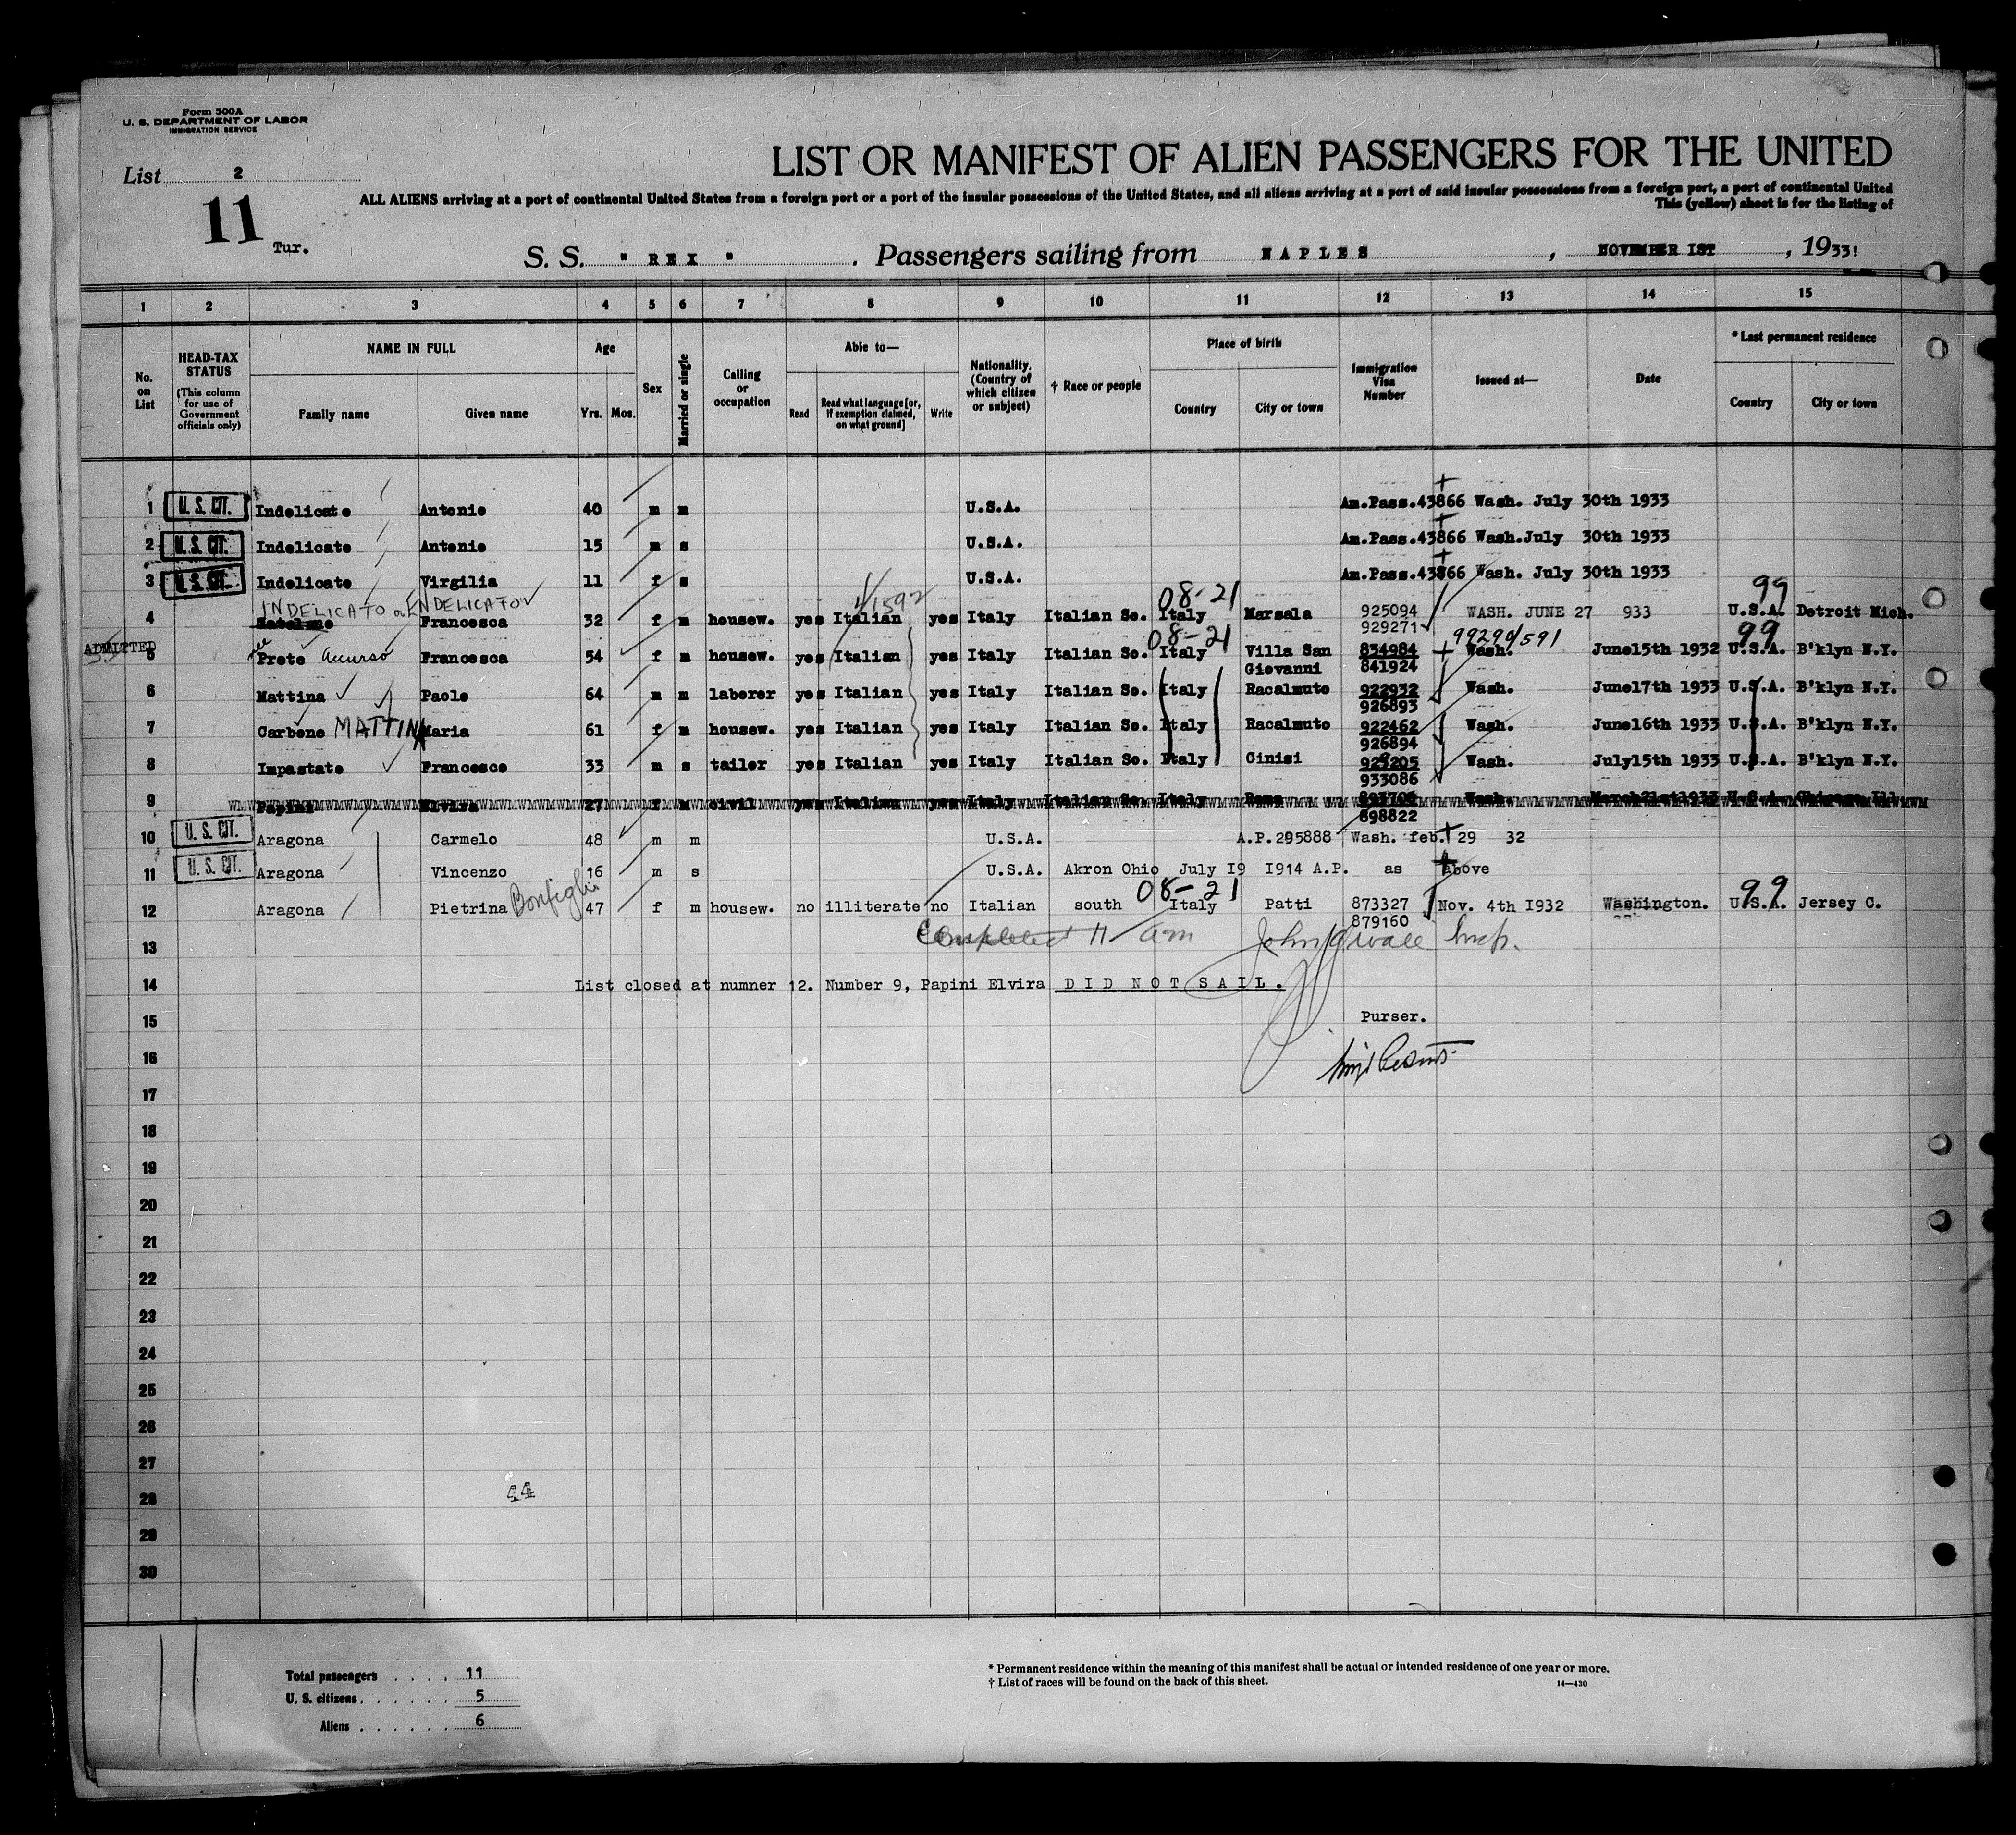 Form 500A
U. S. DEPARTMENT OF LABOR
IMMIGRATION SERVICE
List 2
11
Tur.
LIST OR MANIFEST OF ALIEN PASSENGERS FOR THE UNITED
ALL ALIENS arriving at a port of continental United States from a foreign port or a port of the insular possessions of the United States, and all aliens arriving at a port of said insular possessions from a foreign port, a port of continental United
This (yellow) sheet is for the listing of
S. S. " REX ". Passengers sailing from NAPLES, NOVEMBER 1ST, 1933
1 2 3 4 5 6 7 8 9 10 11 12 13 14 15
No. on List
HEAD-TAX STATUS (This column for use of Government officials only)
NAME IN FULL
Family name Given name
Age
Yrs. Mos.
Sex
Married or single
Calling or occupation
Able to—
Read Read what language [or, if exemption claimed, on what ground] Write
Nationality. (Country of which citizen or subject)
† Race or people
Place of birth
Country City or town
Immigration Visa Number
Issued at—
Date
* Last permanent residence
Country City or town
1 U. S. CIT. Indelicato Antonio 40 m m U.S.A. Am.Pass.43866 Wash. July 30th 1933
2 U. S. CIT. Indelicato Antonio 15 m s U.S.A. Am.Pass.43866 Wash.July 30th 1933
3 U. S. CIT. Indelicato Virgilia 11 f s U.S.A. Am.Pass.43866 Wash. July 30th 1933
INDELICATO or ENDELICATO 1592 08-21 99
4 Francesca 32 f m housew. yes Italian yes Italy Italian So. Italy Marsala 925094 WASH. JUNE 27 933 U.S.A. Detroit Mich.
929271
ADMITTED 08-21 99290/591 99
5 Prete Accurso Francesca 54 f m housew. yes Italian yes Italy Italian So. Italy Villa San Giovanni 834984 Wash. June15th 1932 U.S.A. B'klyn N.Y.
841924
6 Mattina Paolo 64 m m laborer yes Italian yes Italy Italian So. Italy Racalmuto 922932 Wash. June17th 1933 U.S.A. B'klyn N.Y.
926893
7 Carbone MATTINA Maria 61 f m housew. yes Italian yes Italy Italian So. Italy Racalmuto 922462 Wash. June16th 1933 U.S.A. B'klyn N.Y.
926894
8 Impastato Francesco 33 m s tailor yes Italian yes Italy Italian So. Italy Cinisi 929205 Wash. July15th 1933 U.S.A. B'klyn N.Y.
933086
9 Papini Elvira 27 f m civil yes Italian yes Italy Italian So. Italy Roma Wash. March21st1933 U.S.A. Chicago Ill
898822
10 U. S. CIT. Aragona Carmelo 48 m m U.S.A. A.P.295888 Wash. feb. 29 32
11 U. S. CIT. Aragona Vincenzo 16 m s U.S.A. Akron Ohio July I9 I914 A.P. as above
08-21 99
12 Aragona Pietrina Bonfiglio 47 f m housew. no illiterate no Italian south Italy Patti 873327 Nov. 4th I932 Washington. U.S.A. Jersey C.
879160
13 Completed 11 am John Insp.
14 List closed at numner 12. Number 9, Papini Elvira DID NOT SAIL.
15 Purser.
16
17
18
19
20
21
22
23
24
25
26
27
28 44
29
30
Total passengers . . . . 11
U. S. citizens . . . . . . 5
Aliens . . . . . . 6
* Permanent residence within the meaning of this manifest shall be actual or intended residence of one year or more.
† List of races will be found on the back of this sheet.
14—430